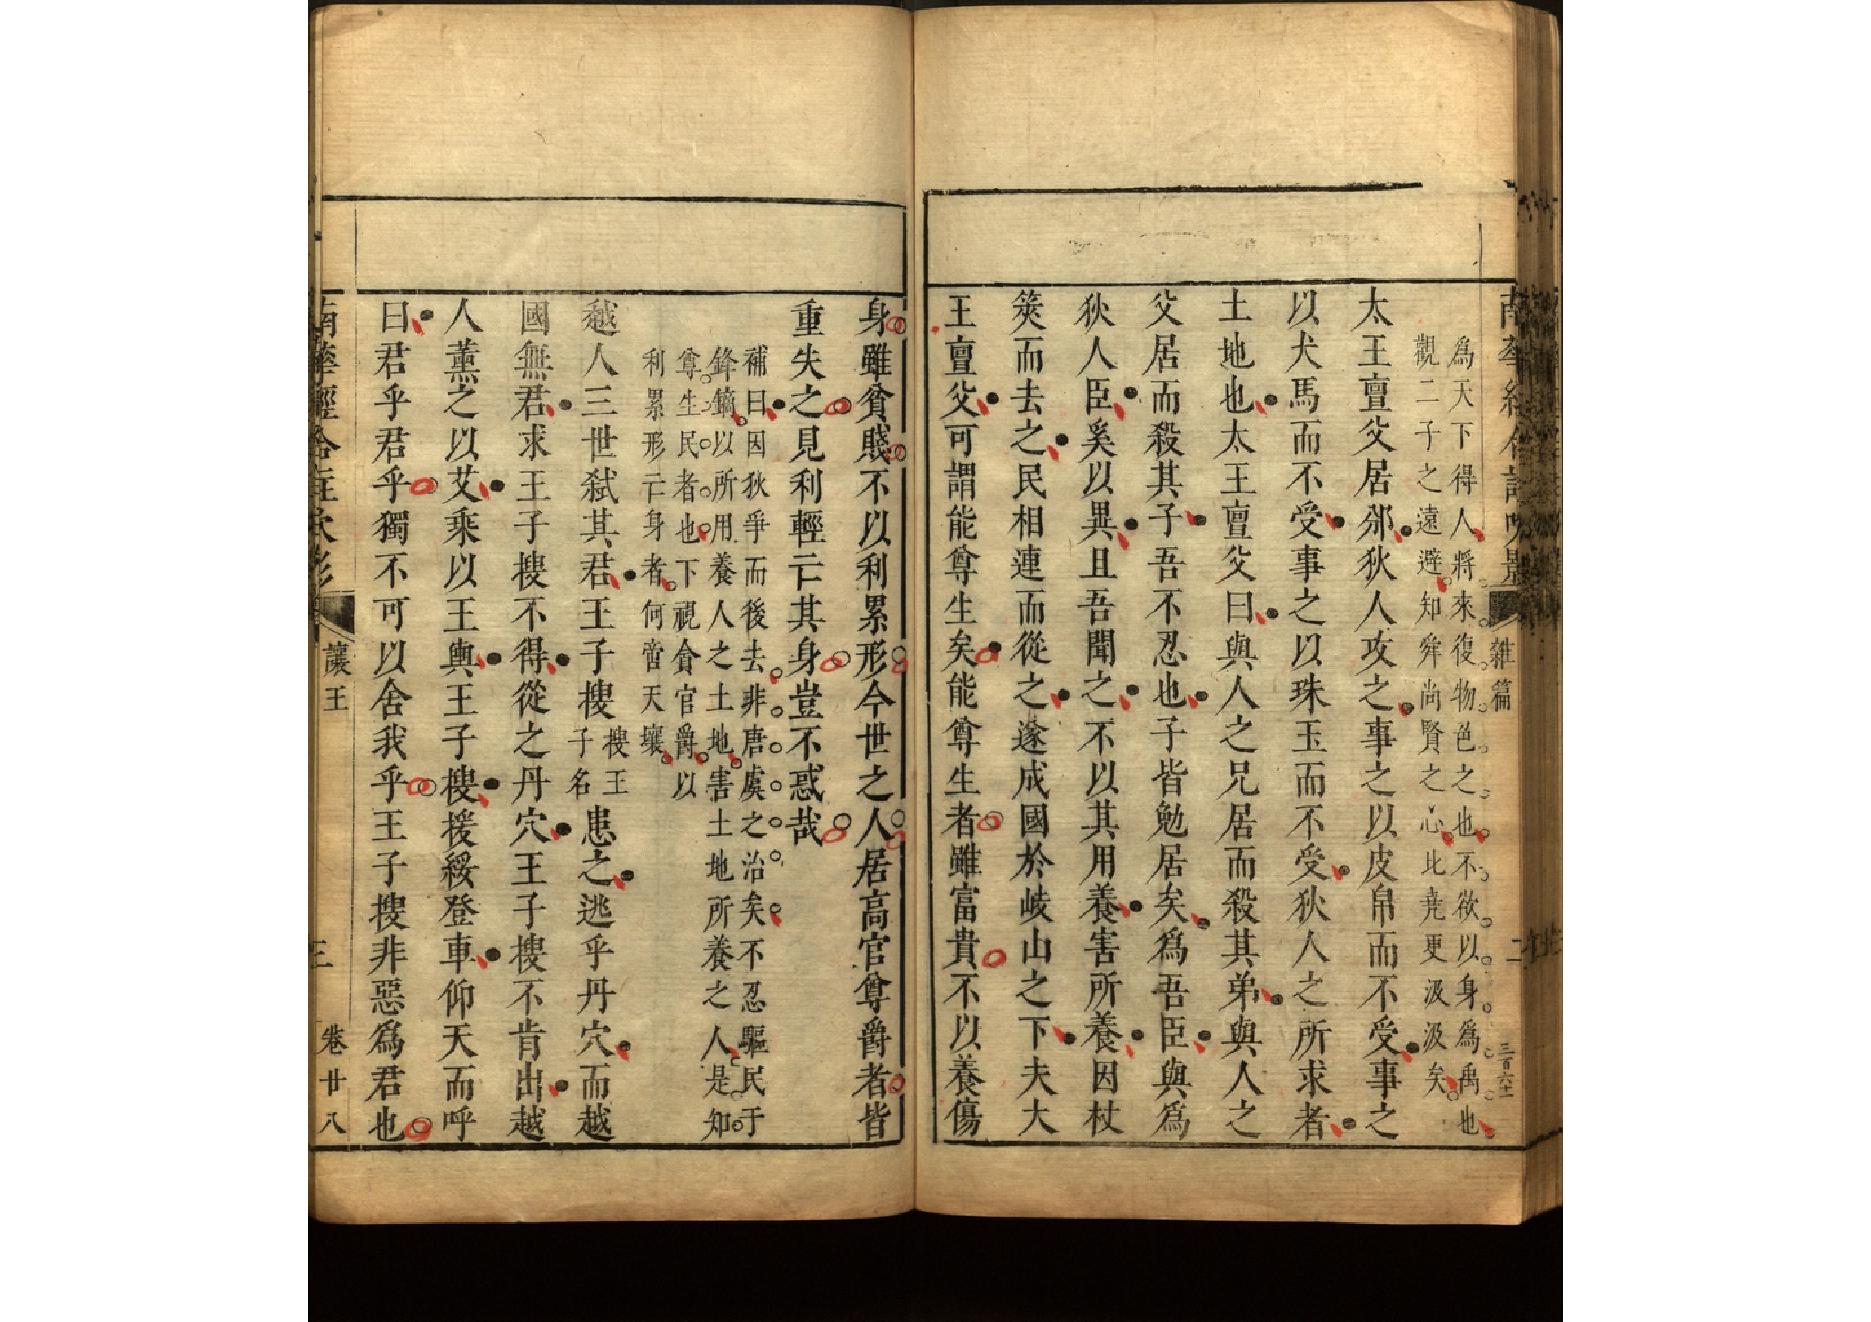 爲天下得人將來復物色之也不欲以身爲禹也
觀二子之遠避知舜尚賢之心比堯更汲汲矣
太王亶父居邠狄人攻之事之以皮帛而不受事之
以犬馬而不受事之以珠玉而不受狄人之所求者
土地也太王亶父曰與人之兄居而殺其弟與人之
父居而殺其子吾不忍也子皆勉居矣爲吾臣與爲
狄人臣奚以異且吾聞之不以其用養害所養因杖
筴而去之民相連而從之遂成國於岐山之下夫大
王亶父可謂能尊生矣能尊生者雖富貴不以養傷
身雖貧賤不以利累形今世之人居高官尊爵者皆
重失之見利輕亡其身豈不惑哉
補曰因狄爭而後去非唐虞之治矣不忍驅民于
鋒鏑以所用養人之土地害土地所養之人是知
尊生民者也下視貪官爵以
利累形亡身者何啻天壤
越人三世弑其君王子搜
搜王
子名
患之逃乎丹穴而越
國無君求王子搜不得從之丹穴王子搜不肯出越
人薰之以艾乘以王輿王子搜援綏登車仰天而呼
曰君乎君乎獨不可以舍我乎王子搜非惡爲君也
讓王
三
卷廿八
雜篇
二